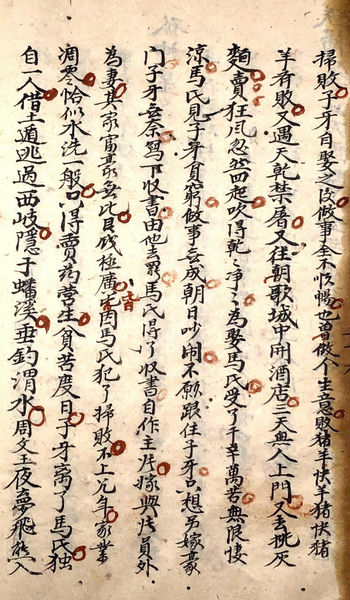 掃敗子牙自娶之後做事全不恢暢也曾做个生意敗猪羊快羊猪快猪
羊有敗又遇天乾禁屠又往朝歌城中開酒店三天無人上門又去挑灰
麵賣狂风忽然四起吹得乾乾净净為娶馬氏受了千辛萬苦無限悽
涼馬氏見子牙貧窮做事無成朝日吵鬧不願跟住子牙只想另嫁豪
門子牙無奈寫下收書由他去罷馬氏得了收書自作主張嫁與張員外
為妻其家富豪無比艮錢極廣皆因馬氏犯了掃敗不上幾年家業
凋零恰似水洗一般只得賣药營生貧苦度日子牙离了馬氏独
自一人借土遁逃過西岐隱于蟠溪垂釣渭水周文王夜夢飛熊入